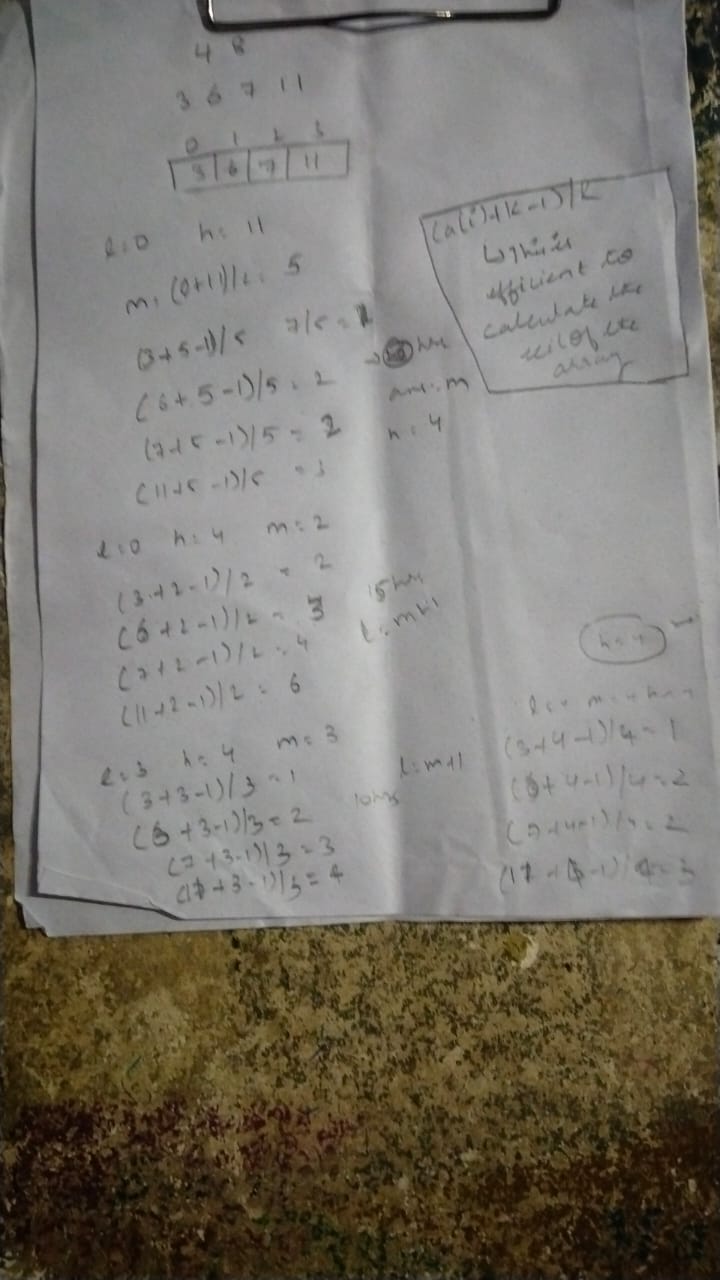 4 8
3 6 7 11
0 1 2 3
3 6 7 11
l=0 h= 11
m= (0+11)/2= 5
(3+5-1)/5 7/5 = 1
(6+5-1)/5 = 2
(7+5-1)/5 = 2
(11+5-1)/5 = 3
hrs
ans=m
h=4
(a(i)+k-1)/k
↳ this is
efficient to
calculate the
ceil of the
array
l=0 h=4 m=2
(3+2-1)/2 = 2
(6+2-1)/2 = 3
(7+2-1)/2 = 4
(11+2-1)/2 = 6
15 hrs
l=m+1
l=3 h=4 m=3
(3+3-1)/3 = 1
(6+3-1)/3 = 2
(7+3-1)/3 = 3
(11+3-1)/3 = 4
10hrs
l=m+1
h=4
(3+4-1)/4 = 1
(6+4-1)/4 = 2
(7+4-1)/4 = 2
(11+4-1)/4 = 3